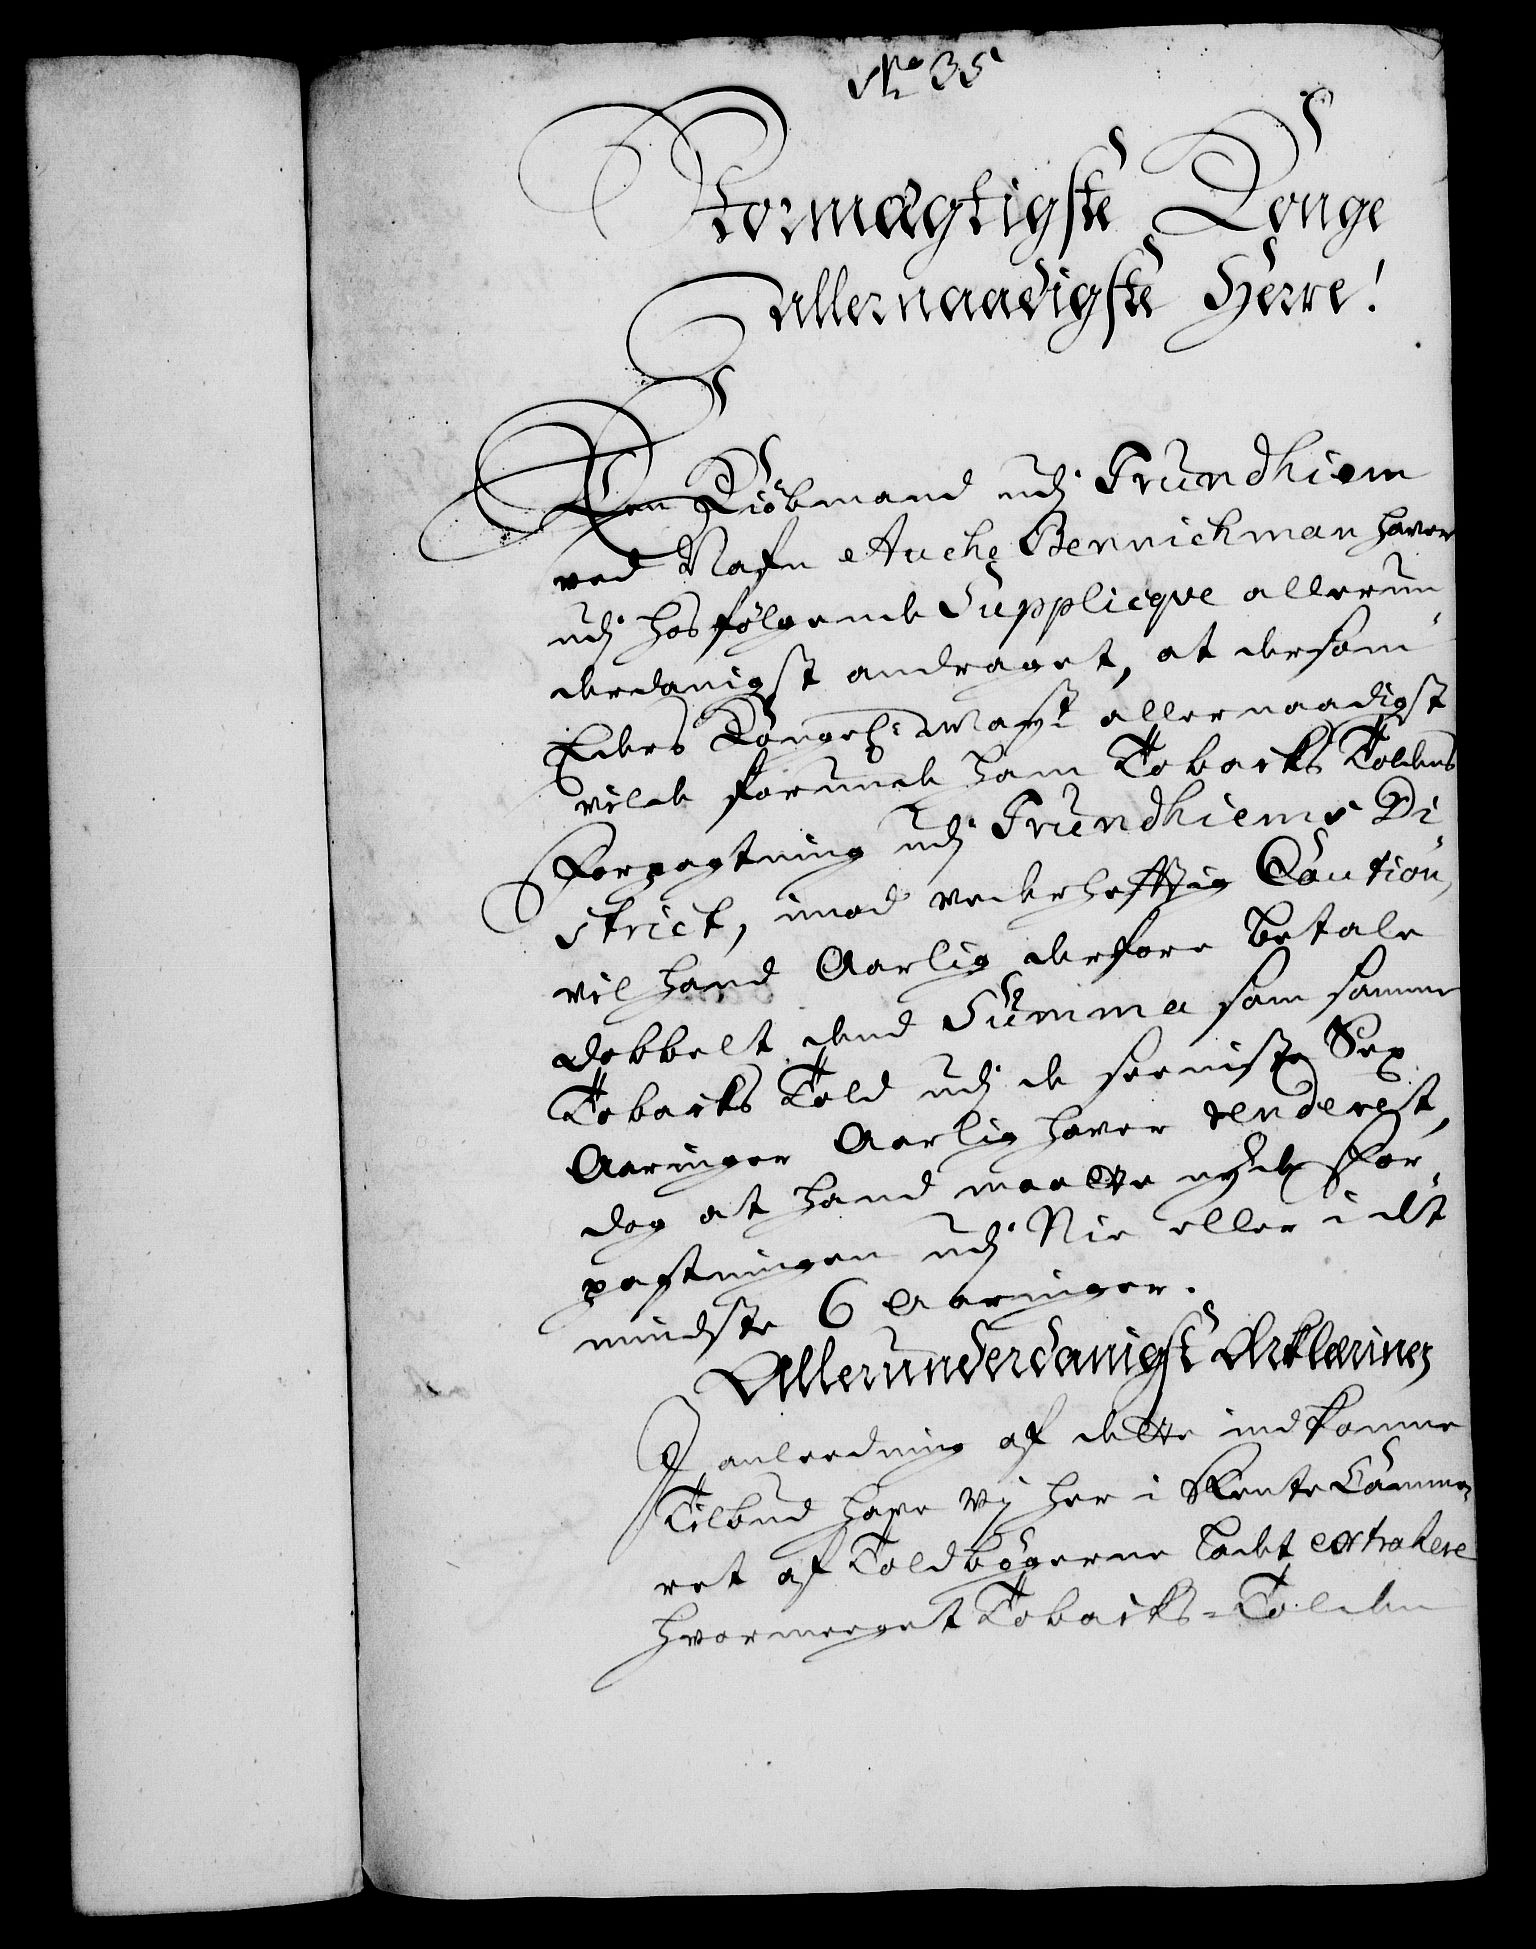 No 35
Stormægtigste Konge
Allernaadigste Herre!
Een Kiöbmand udj Trundhiem
ved Nafn Auche Bennichman haver
udj hosfølgende Supplicqve allerun
derdanigst andraget, at dersom
Eders Kongel: Mayt allernaadigst
vilde forunde ham Tobacks Toldens
Forpagtning udj Trundhiems Di
strict, imod vederheftig Caution,
vil hand Aarlig derfore betale
dobbelt dend Summa som samme
Tobacks Told udj de seeniste Sex
Aaringer Aarlig haver renderest,
dog at hand maatte nyde For
pagtningen udj Nie eller i det
mindste 6 Aaringer.
Allerunderdanigst Erklæring
J anleedning af dette indkomne
Tilbud have Vj her i RenteCamme
ret af Toldbøgerne ladet extrahere
hvormeeget Tobacks-Tolden